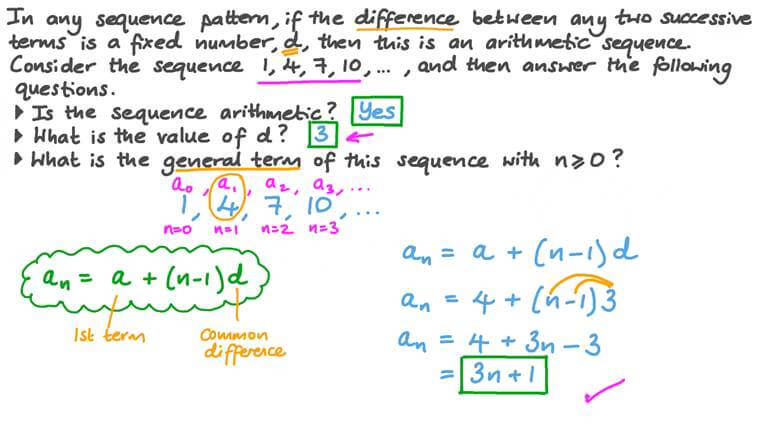 In any sequence pattern, if the difference between any two successive
terms is a fixed number, d, then this is an arithmetic sequence.
Consider the sequence 1, 4, 7, 10, ..., and then answer the following
questions.
▸ Is the sequence arithmetic? Yes
▸ What is the value of d? 3 ←
▸ What is the general term of this sequence with n ⩾ 0?
a₀, a₁, a₂, a₃, ...
1, 4, 7, 10, ...
n=0 n=1 n=2 n=3
aₙ = a + (n-1)d
1st term
Common
difference
aₙ = a + (n-1)d
aₙ = 4 + (n-1)3
aₙ = 4 + 3n - 3
= 3n + 1